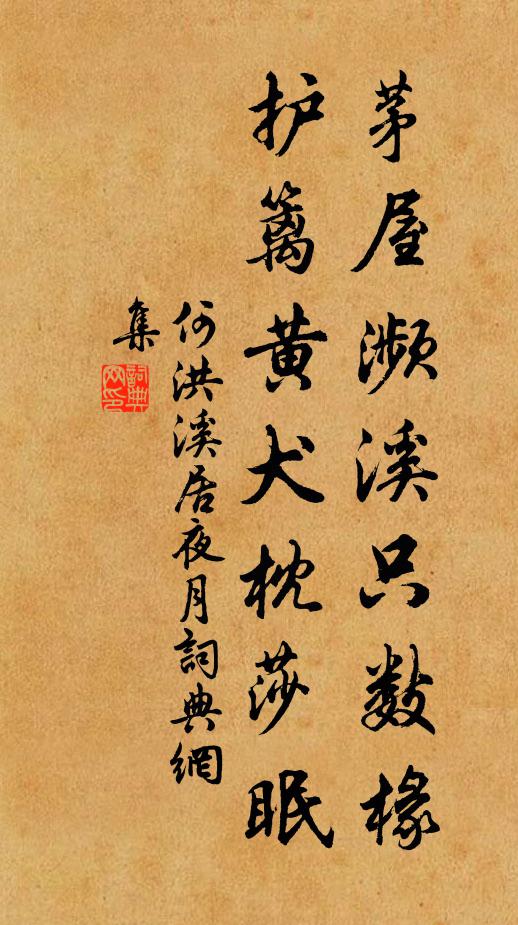 茅屋濒溪只数椽
护篱黄犬枕莎眠
何洪溪居夜月詞典網
集
詞典网印